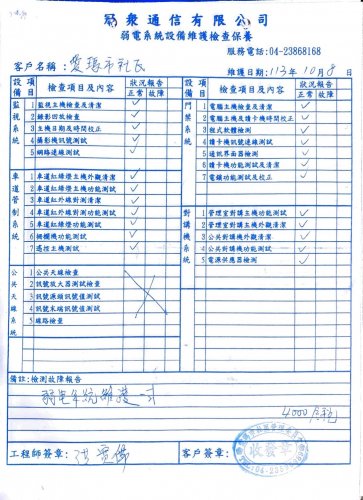 易象通信有限公司
弱電系統設備維護檢查保養
服務電話:04-23868168
客戶名稱: 市社區
維護日期:113年10月8日
設備 項目 檢查項目及內容 狀況報告 正常 故障
監視系統
1 監視主機檢查及清潔 ✓
2 錄影回放檢查 ✓
3 主機日期及時間校正 ✓
4 攝影機訊號測試 ✓
5 網路連線測試 ✓
車道管制系統
1 車道紅綠燈主機外觀清潔 ✓
2 車道紅綠燈主機功能測試 ✓
3 車道紅外線對測清潔 ✓
4 車道紅外線對測功能測試 ✓
5 車道紅綠燈功能測試 ✓
6 柵欄機功能測試 ✓
7 遙控主機測試 ✓
公共天線系統
1 公共天線檢查
2 訊號放大器測試檢查
3 訊號源頭訊號值測試
4 訊號末端訊號值測試
5 線路檢查
設備 項目 檢查項目及內容 狀況報告 正常 故障
門禁系統
1 電腦主機檢查及清潔 ✓
2 電腦主機及讀卡機時間校正 ✓
3 程式軟體檢測 ✓
4 讀卡機訊號連線測試 ✓
5 通訊界面器檢測 ✓
6 讀卡機外觀清潔及測試 ✓
7 電鎖功能測試及校正 ✓
對講機系統
1 管理室對講主機功能測試 ✓
2 管理室對講主機外觀清潔 ✓
3 公共對講機外觀清潔 ✓
4 公共對講機功能測試 ✓
5 電源供應器檢測 ✓
備註:檢測故障報告
弱電系統維護 式
4000
收發章
工程師簽章:
客戶簽章: